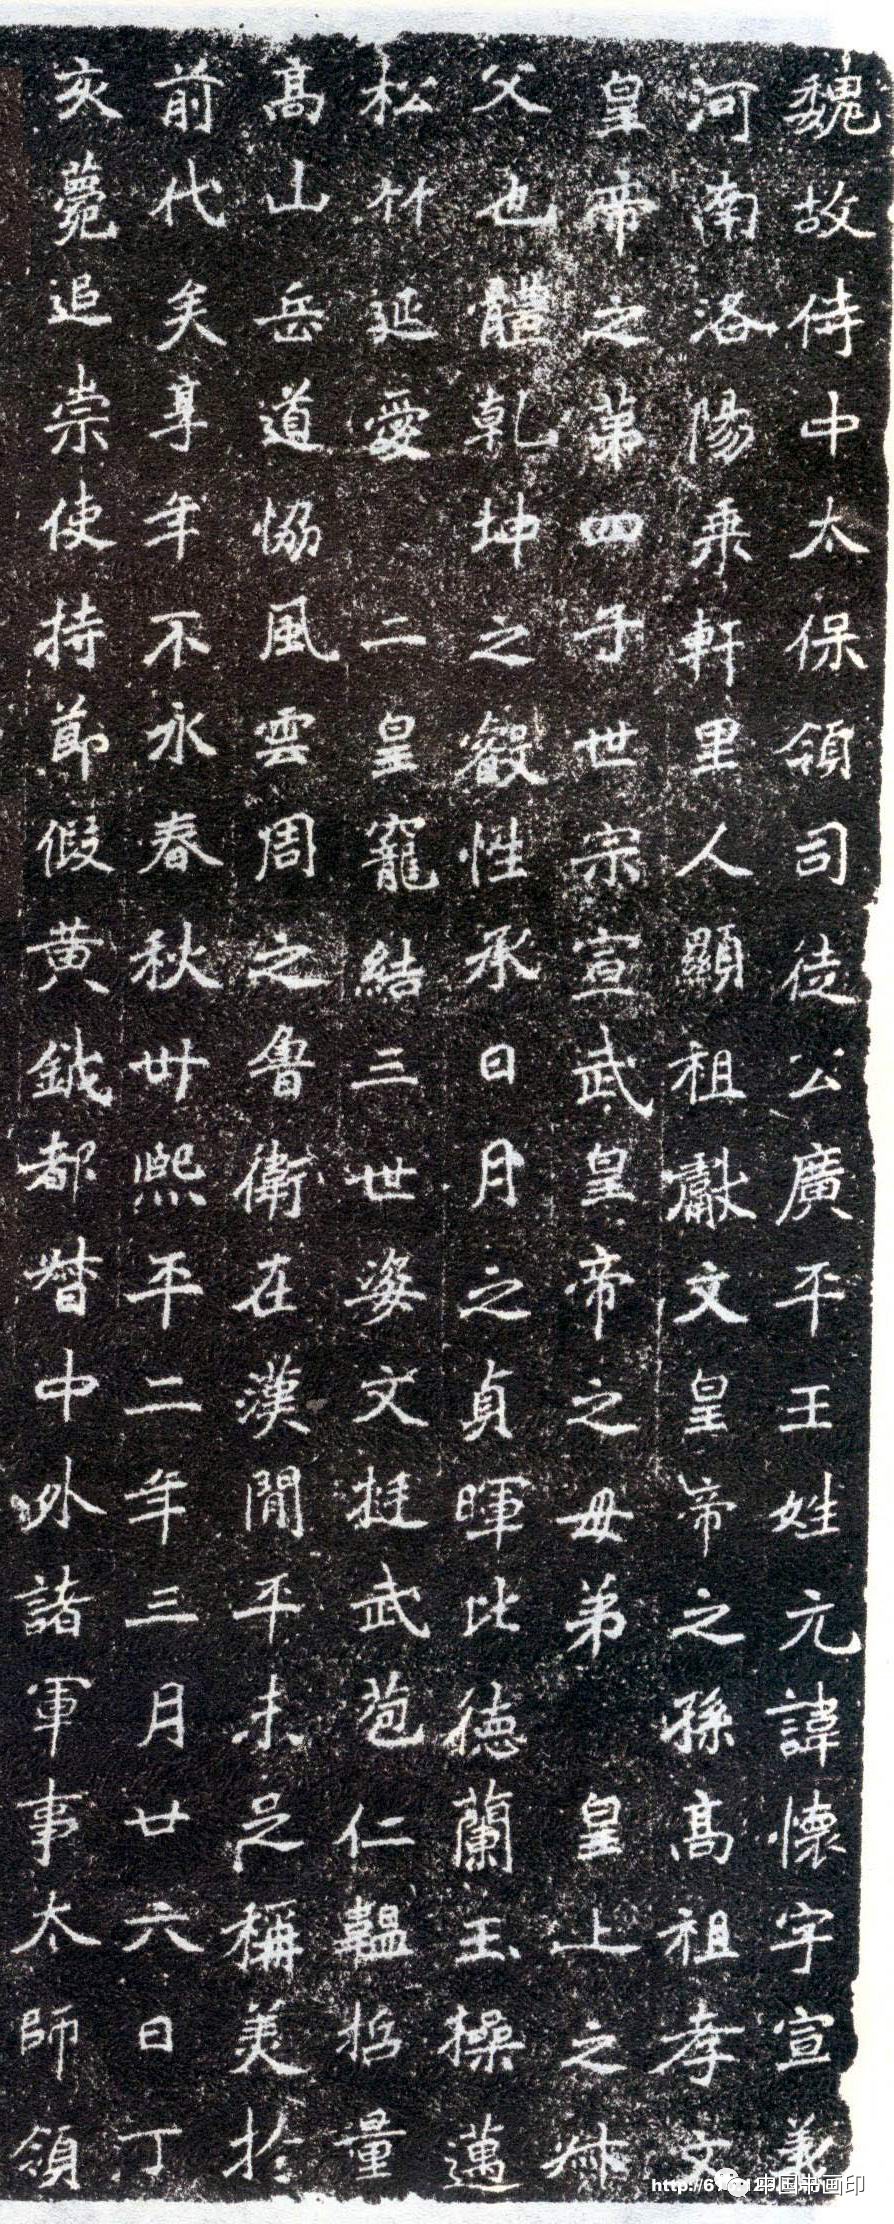 魏故侍中太保領司徒公廣平王姓元諱懷字宣義
河南洛陽乘軒里人顯祖獻文皇帝之孫高祖孝文
皇帝之第四子世宗宣武皇帝之母弟 皇上之叔
父也體乾坤之叡性承日月之貞暉比德蘭玉操邁
松竹延愛 二皇寵結三世姿文挺武苞仁韞哲量
高山岳道協風雲周之魯衛在漢閒平未足稱美於
前代矣享年不永春秋卅熙平二年三月廿六日丁
亥薨追崇使持節假黃鉞都督中外諸軍事太師領
中国书画印